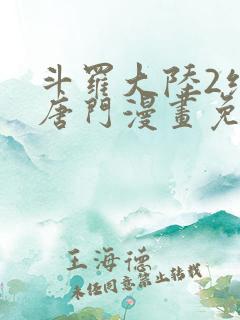 斗羅大陸2
唐門漫畫免
王海德
未經同意禁止轉載